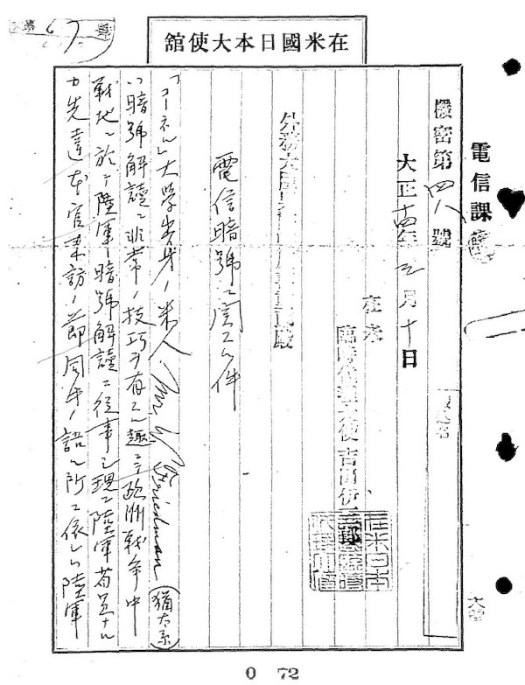 在米國日本大使舘
電信課
機密第四八號
大正十四年三月十日
在米
臨時代理大使吉田伊三郎
外務大臣
電信暗號ニ関スル件
「コーネル」大學出身ノ米人 Friedman (猶太系)
ハ暗號解讀ニ非常ノ技巧ヲ有スル趣ニテ欧洲戰争中
戰地ニ於テ陸軍暗號解讀ニ從事シ現ニ陸軍省員ナル
カ先達本官来訪ノ節同人ノ語ル所ニ依レハ陸軍
0 72